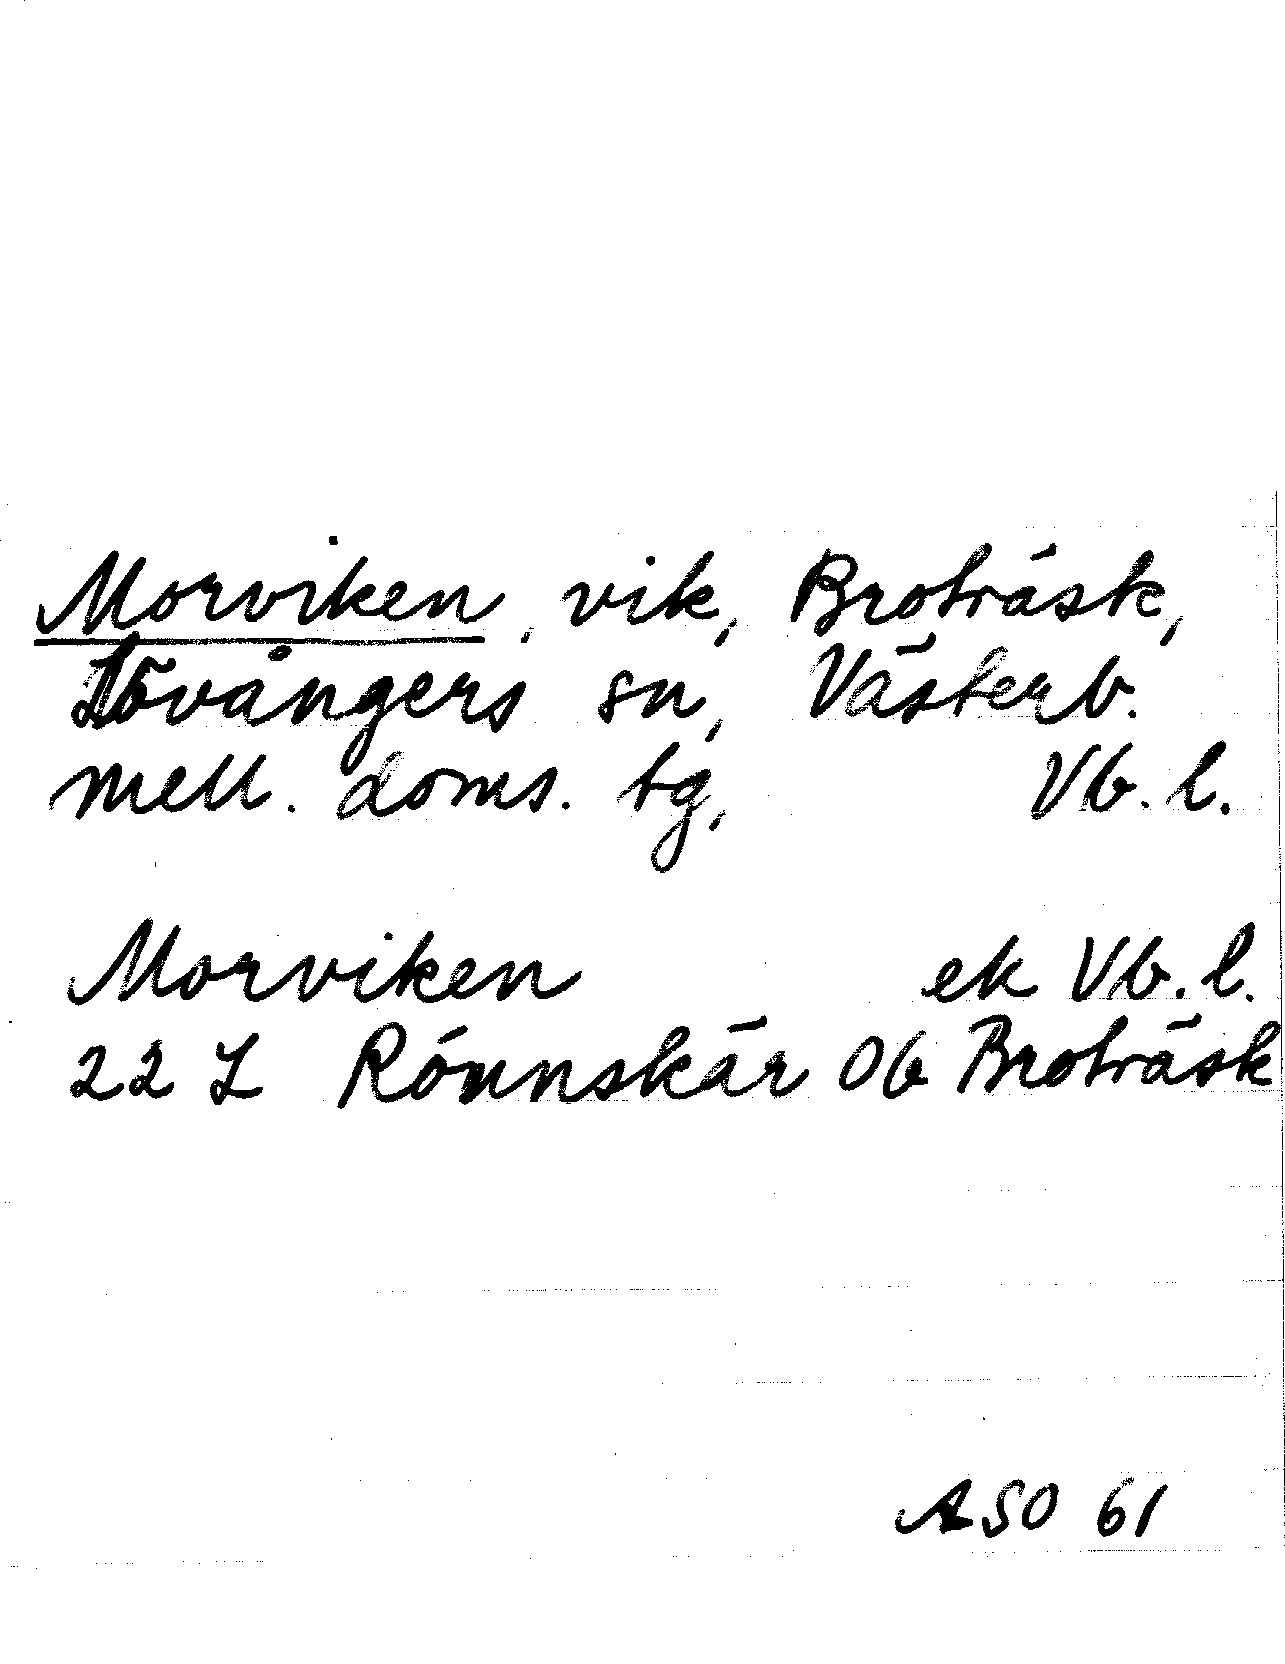 Morviken, vik, Broträsk,
Lövångers sn, Västerb.
mell. doms. tg, Vb. l.
Morviken ek Vb. l.
22 L Rönnskär Ob Broträsk
ASO 61